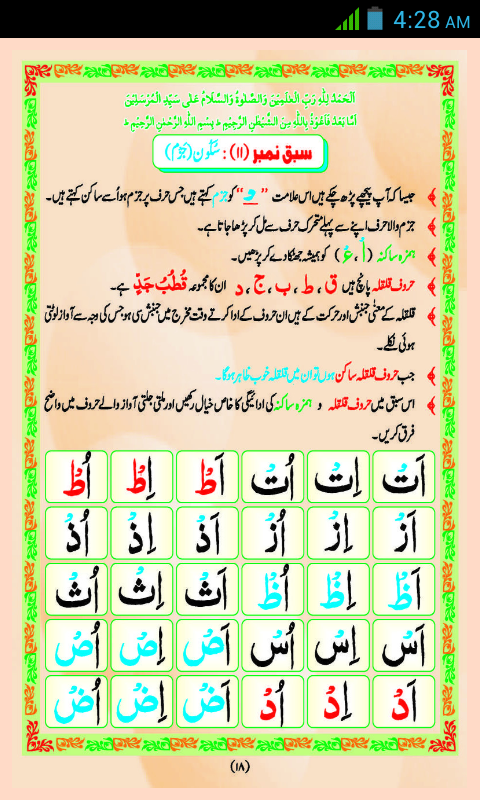 4:28 AM
اَلْحَمْدُ لِلّٰہِ رَبِّ الْعٰلَمِیْنَ وَالصَّلٰوۃُ وَالسَّلَامُ عَلٰی سَیِّدِ الْمُرْسَلِیْنَ
اَمَّا بَعْدُ فَاَعُوْذُ بِاللّٰہِ مِنَ الشَّیْطٰنِ الرَّجِیْمِ ؕ بِسْمِ اللّٰہِ الرَّحْمٰنِ الرَّحِیْمِ ؕ
سبق نمبر (۱۱) : سُکُون (جَزْم)
جیسا کہ آپ پیچھے پڑھ چکے ہیں اس علامت " ــْـ " کو جزم کہتے ہیں جس حرف پر جزم ہو اُسے ساکن کہتے ہیں۔
جزم والا حرف اپنے سے پہلے متحرک حرف سے مل کر پڑھا جاتا ہے۔
ہمزہ ساکنہ (أْ ، ءْ) کو ہمیشہ جھٹکا دے کر پڑھیں۔
حروفِ قلقلہ پانچ ہیں ق ، ط ، ب ، ج ، د ان کا مجموعہ قُطُبُ جَدٍّ ہے۔
قلقلہ کے معنٰی جنبش اور حرکت کے ہیں ان حروف کے ادا کرتے وقت مخرج میں جنبش سی ہو جس کی وجہ سے آواز لوٹتی
ہوئی نکلے۔
جب حروفِ قلقلہ ساکن ہوں تو ان میں قلقلہ خوب ظاہر ہوگا۔
اس سبق میں حروفِ قلقلہ و ہمزہ ساکنہ کی ادائیگی کا خاص خیال رکھیں اور ملتی جلتی آواز والے حروف میں واضح
فرق کریں۔
اَتْ اِتْ اُتْ اَطْ اِطْ اُطْ
اَزْ اِزْ اُزْ اَذْ اِذْ اُذْ
اَظْ اِظْ اُظْ اَثْ اِثْ اُثْ
اَسْ اِسْ اُسْ اَصْ اِصْ اُصْ
اَدْ اِدْ اُدْ اَضْ اِضْ اُضْ
(۱۸)